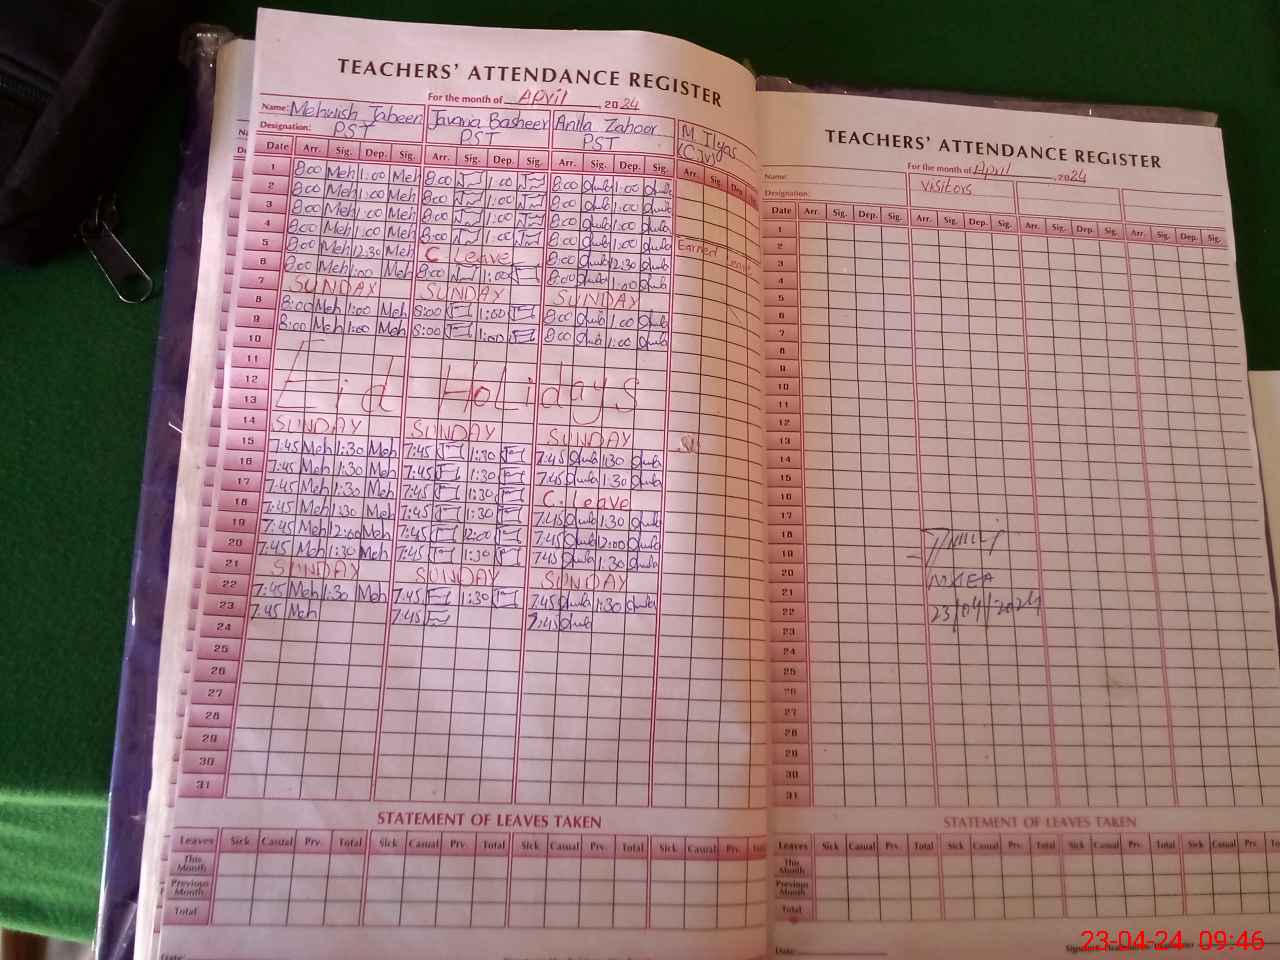 TEACHERS' ATTENDANCE REGISTER
For the month of April, 2024
Name: Mehwish Jabeen Javaria Basheer Anila Zahoor M Ilyas
Designation: PST PST PST (C.IV)
Date Arr. Sig. Dep. Sig. Arr. Sig. Dep. Sig. Arr. Sig. Dep. Sig. Arr. Sig. Dep.
1 8:00 Meh 1:00 Meh 8:00 1:00 8:00 1:00
2 8:00 Meh 1:00 Meh 8:00 1:00 8:00 1:00
3 8:00 Meh 1:00 Meh 8:00 1:00 8:00 1:00
4 8:00 Meh 1:00 Meh 8:00 1:00 8:00 1:00
5 8:00 Meh 12:30 Meh C Leave 8:00 12:30 Earned Leave
6 8:00 Meh 1:00 Meh 8:00 1:00 8:00 1:00
7 SUNDAY SUNDAY SUNDAY
8 8:00 Meh 1:00 Meh 8:00 1:00 8:00 1:00
9 8:00 Meh 1:00 Meh 8:00 1:00 8:00 1:00
10
11
12 Eid Holidays
13
14 SUNDAY SUNDAY SUNDAY
15 7:45 Meh 1:30 Meh 7:45 1:30 7:45 1:30
16 7:45 Meh 1:30 Meh 7:45 1:30 7:45 1:30
17 7:45 Meh 1:30 Meh 7:45 1:30 C. Leave
18 7:45 Meh 1:30 Meh 7:45 1:30 7:45 1:30
19 7:45 Meh 12:00 Meh 7:45 12:00 7:45 12:00
20 7:45 Meh 1:30 Meh 7:45 1:30 7:45 1:30
21 SUNDAY SUNDAY SUNDAY
22 7:45 Meh 1:30 Meh 7:45 1:30 7:45 1:30
23 7:45 Meh 7:45 7:45
24
25
26
27
28
29
30
31
STATEMENT OF LEAVES TAKEN
Leaves Sick Casual Prv. Total Sick Casual Prv. Total Sick Casual Prv. Total Sick Casual Prv.
This Month
Previous Month
Total
Date:
TEACHERS' ATTENDANCE REGISTER
For the month of April, 2024
Name:
Designation: Visitors
Date Arr. Sig. Dep. Sig. Arr. Sig. Dep. Sig. Arr. Sig. Dep. Sig. Arr. Sig. Dep. Sig.
1
2
3
4
5
6
7
8
9
10
11
12
13
14
15
16
17
18
19
20
21
22
23
24
25
26
27
28
29
30
31
MEA
23/04/2024
STATEMENT OF LEAVES TAKEN
Leaves Sick Casual Prv. Total Sick Casual Prv. Total Sick Casual Prv. Total Sick Casual Prv.
This Month
Previous Month
Total
Date:
23-04-24 09:46